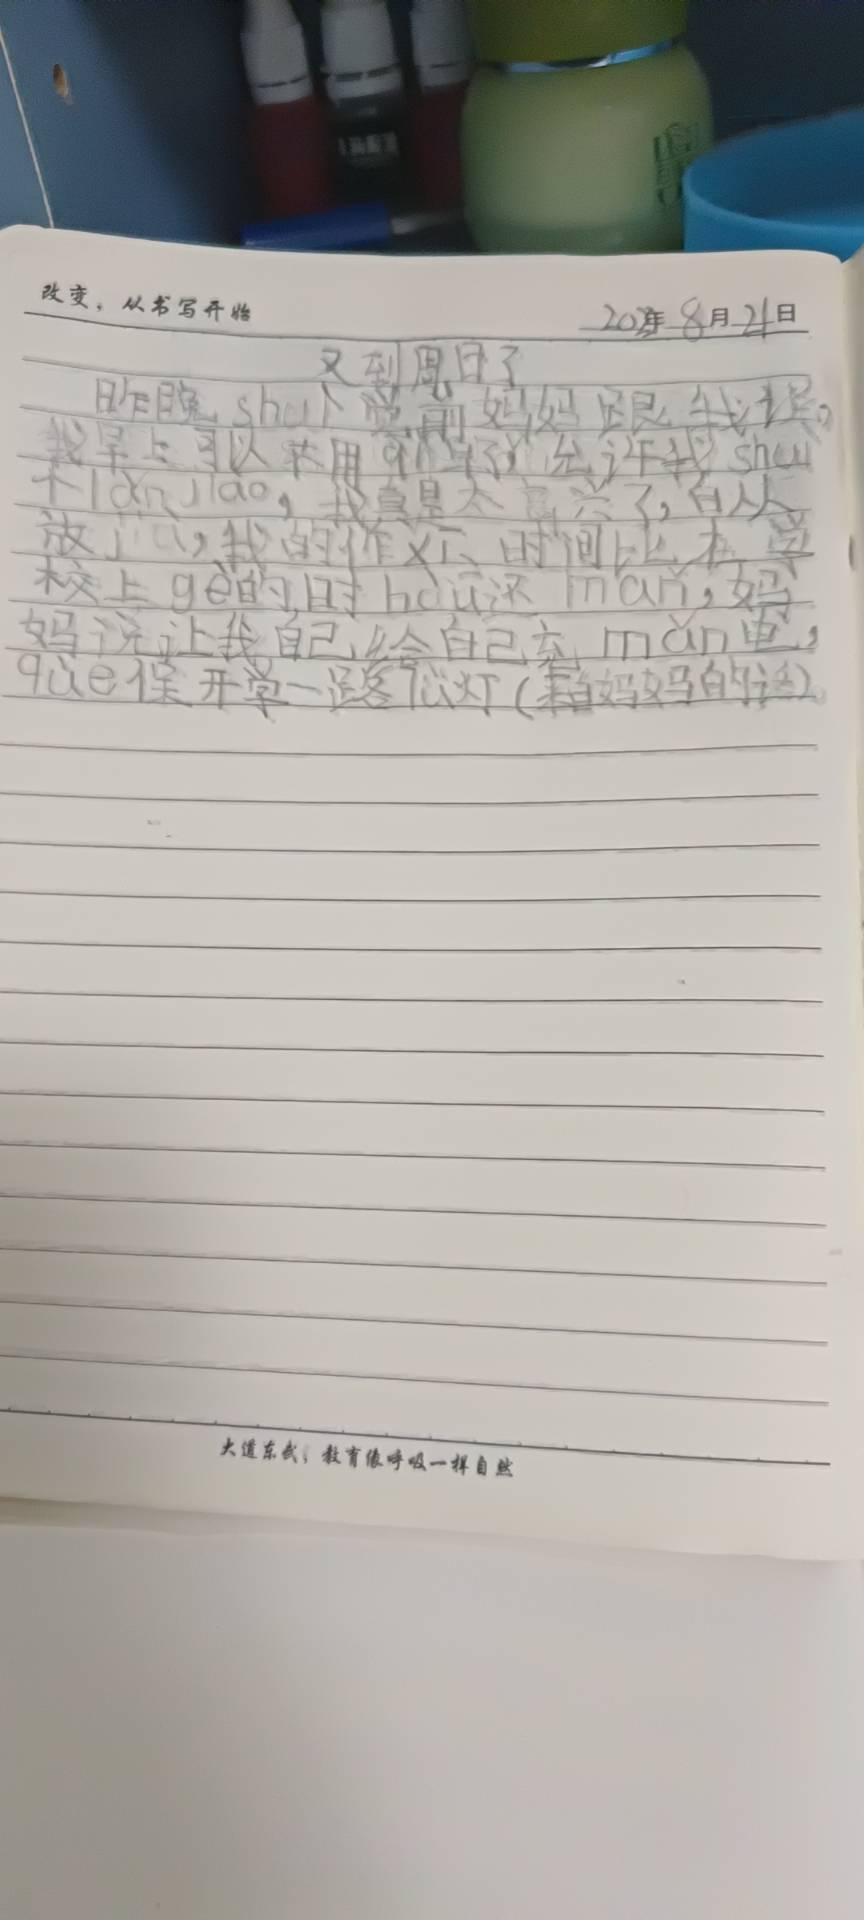 改变，从书写开始
年8月21日
又到周日了
昨晚shuì觉前妈妈跟我说，
我早上可以不用 允许我shuì
个lǎn jiào，我真是太高兴了，自从
放jià，我的作息时间比在学
校上 gè的时hòu还mǎn，妈
妈说让我自己给自己充mǎn电，
què保开学一路 灯（来自妈妈的话）
大道东武，教育像呼吸一样自然